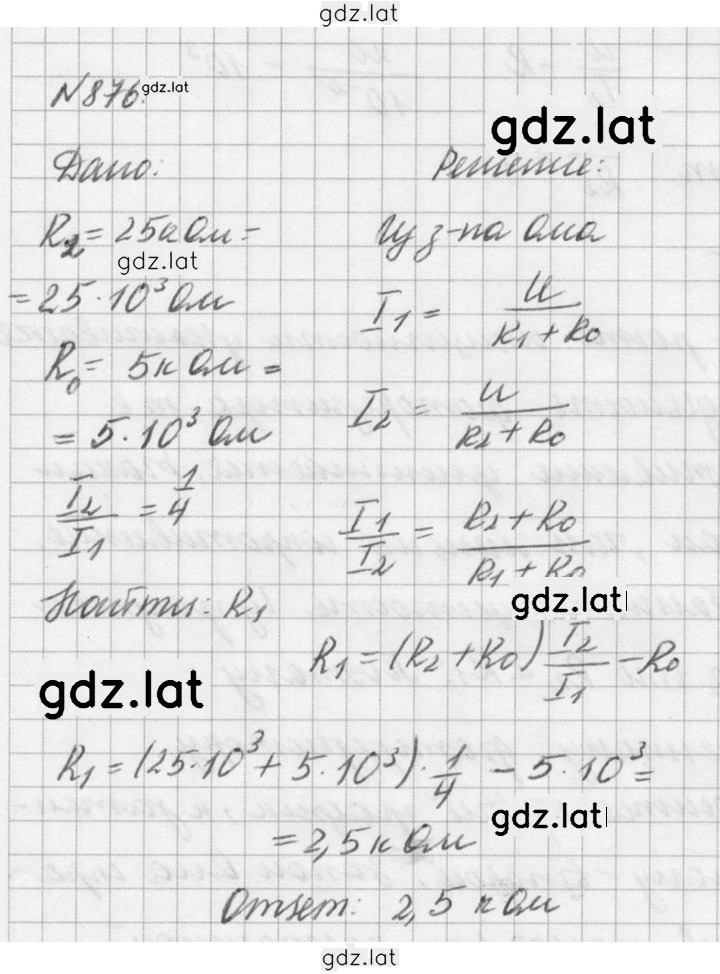 gdz.lat
№876.
gdz.lat
gdz.lat
Дано:
Решение:
R₂ = 25кОм =
gdz.lat
= 25·10³ Ом
R₀ = 5кОм =
= 5·10³ Ом
I₂/I₁ = 1/4
Найти: R₁
Из з-на Ома
I₁ = U/(R₁ + R₀)
I₂ = U/(R₂ + R₀)
I₁/I₂ = (R₂ + R₀)/(R₁ + R₀)
gdz.lat
R₁ = (R₂ + R₀) I₂/I₁ − R₀
gdz.lat
R₁ = (25·10³ + 5·10³)·1/4 − 5·10³ =
= 2,5 кОм
gdz.lat
Ответ: 2,5 кОм
gdz.lat